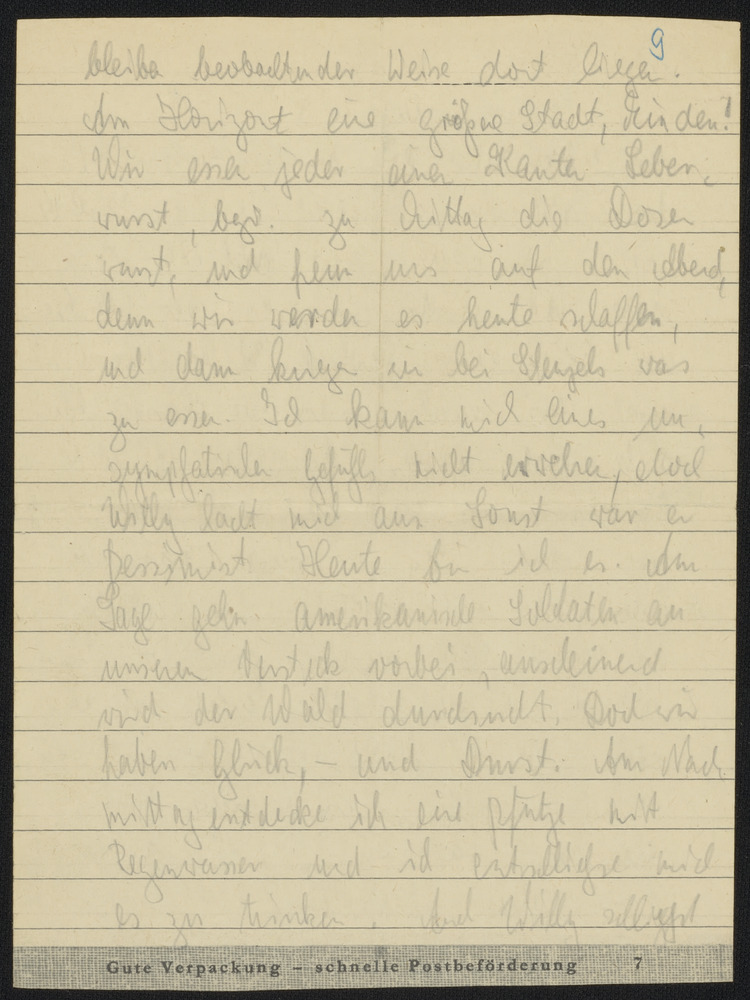 9
bleibe beobachtender Weise dort liegen.
Am Horizont eine größere Stadt, Minden?
Wir essen jeder einen Kanten Leber-
wurst, bezw. zu Mittag die Dosen
wurst, und freun uns auf den Abend,
denn wir werden es heute schaffen,
und dann kriegen wir bei Stenzels was
zu essen. Ich kann mich eines un-
sympatischen Gefühls nicht erwehren, doch
Willy lacht mich aus. Sonst war er
Pessimist. Heute bin ich es. Am
Tage gehn amerikanische Soldaten an
unserem Versteck vorbei, anscheinend
wird der Wald durchsucht. Doch wir
haben Glück, – und Durst. Am Nach-
mittag entdecke ich eine Pfütze mit
Regenwasser und ich entschließe mich
es zu trinken. Auch Willy schlürft
Gute Verpackung – schnelle Postbeförderung 7